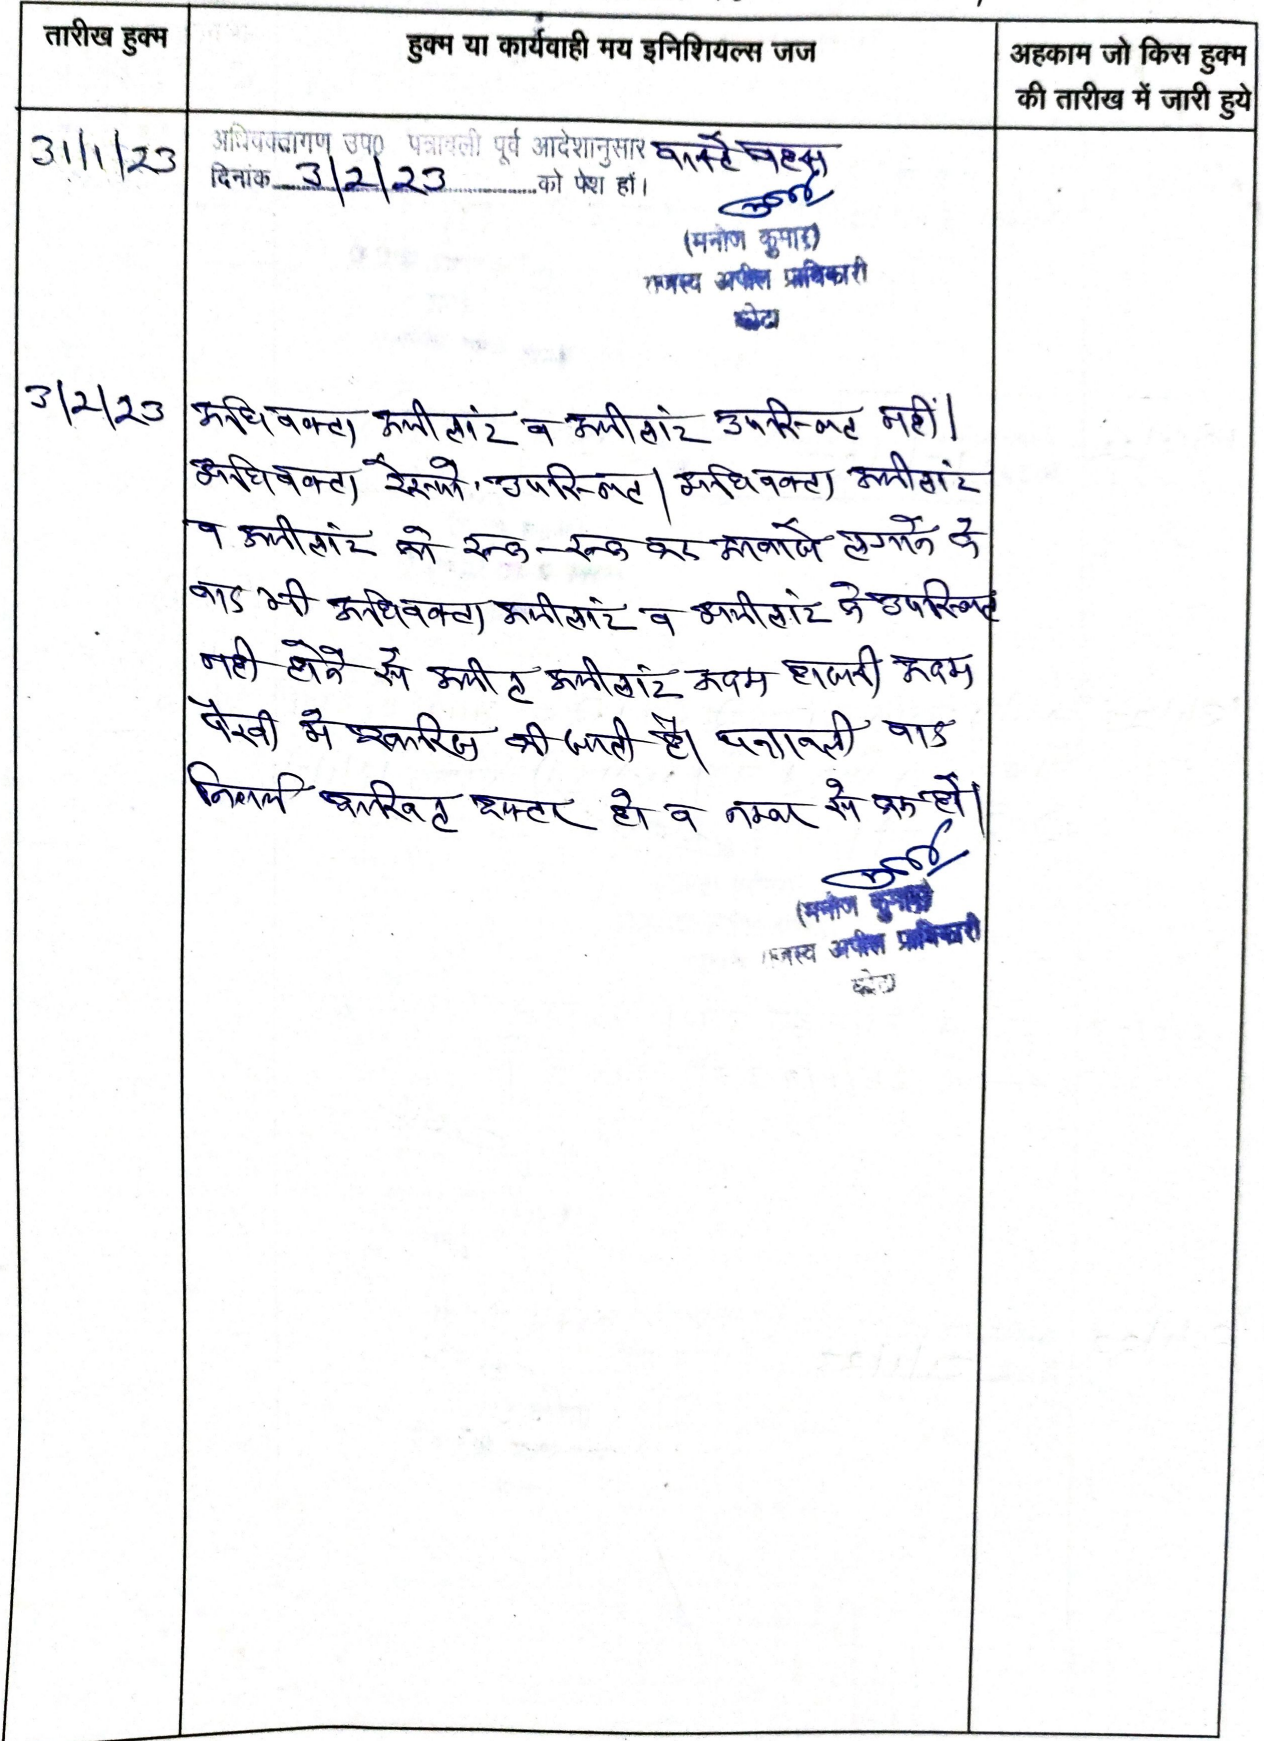 तारीख हुक्म
हुक्म या कार्यवाही मय इनिशियल्स जज
अहकाम जो किस हुक्म
की तारीख में जारी हुये
31/1/23
अधिवक्तागण उप0 पत्रावली पूर्व आदेशानुसार वास्ते बहस
दिनांक 3/2/23 को पेश हों।
(मनोज कुमार)
राजस्व अपील प्राधिकारी
कोटा
3/2/23
अधिवक्ता अपीलांट व अपीलांट उपस्थित नहीं।
अधिवक्ता रेस्पो. उपस्थित। अधिवक्ता अपीलांट
व अपीलांट को रूक-रूक कर आवाजें लगाने के
बाद भी अधिवक्ता अपीलांट व अपीलांट के उपस्थित
नही होने से अपील अपीलांट अदम हाजरी अदम
पैरवी में खारिज की जाती है। पत्रावली बाद
निर्णय दाखिल दफ्तर हो व नम्बर से कम हों।
(मनोज कुमार)
राजस्व अपील प्राधिकारी
कोटा